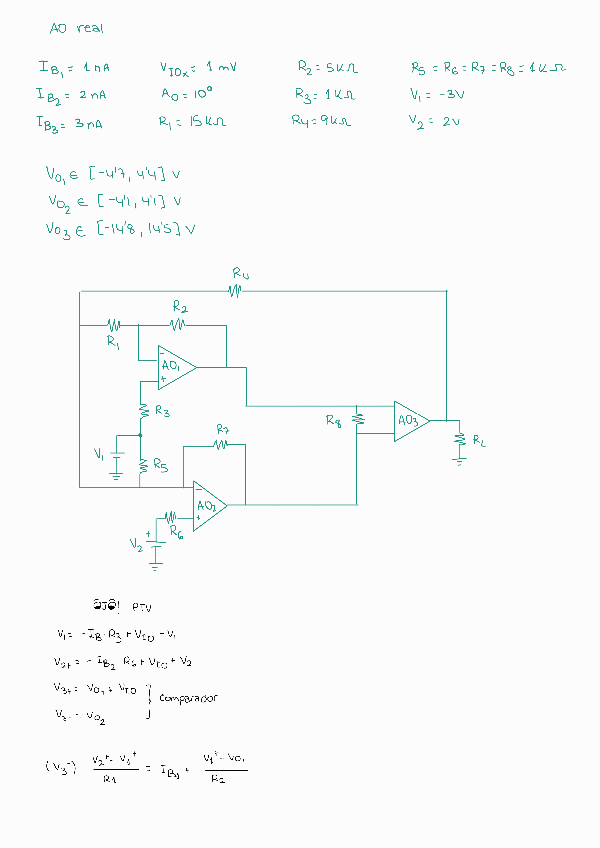 AO real
I_B1 = 1 nA   V_IOx = 1 mV   R2 = 5 kΩ   R5 = R6 = R7 = R8 = 1 kΩ
I_B2 = 2 nA   A0 = 10⁰   R3 = 1 kΩ   V1 = -3V
I_B3 = 3 nA   R1 = 15 kΩ   R4 = 9 kΩ   V2 = 2v
V_O1 ∈ [-4'7, 4'4] V
V_O2 ∈ [-4'1, 4'1] V
V_O3 ∈ [-14'8, 14'5] V
R4
R2
R1
-
AO1
+
R3
R8
AO3
R7
V1
R5
RL
-
AO2
+
+
R6
V2
OJO! PTV
V1 = -I_B · R3 + V_IO - V1
V2+ = - I_B2 R6 + V_IO + V2
V3+ = V_O1 + V_IO
comparador
V3- = V_O2
(V3-) (V2+ - V1+)/R1 = I_B1 + (V1+ - V_O1)/R2